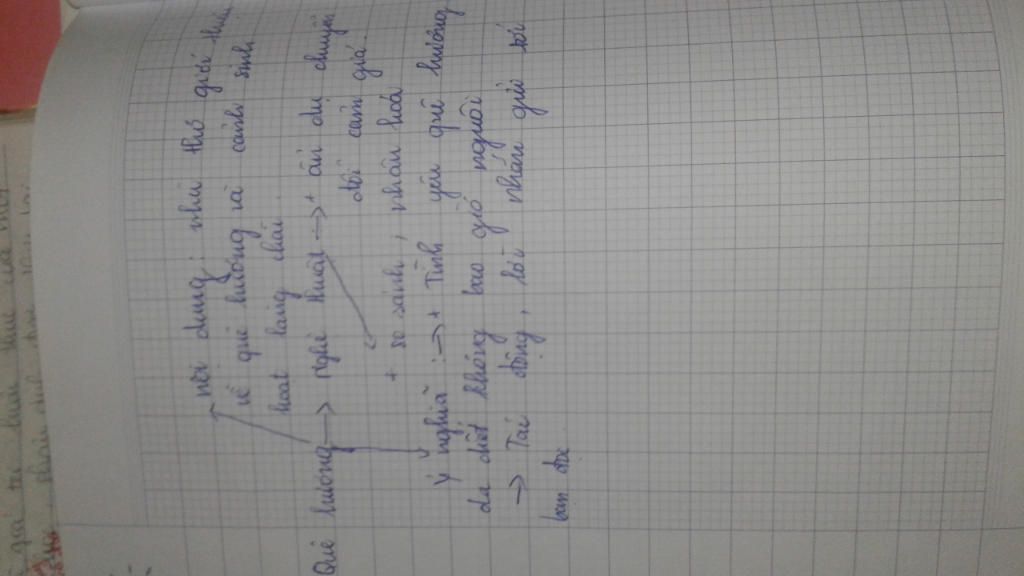 nội dung: nhà thơ giới thiệu
về quê hương và cảnh sinh
hoạt làng chài.
Quê hương → nghệ thuật → + ẩn dụ chuyển
đổi cảm giá.
+ so sánh, nhân hoá
Ý nghĩa : → + Tình yêu quê hương
da diết không bao giờ nguôi
→ Tác động, lời nhắn gửi tới
bạn đọc